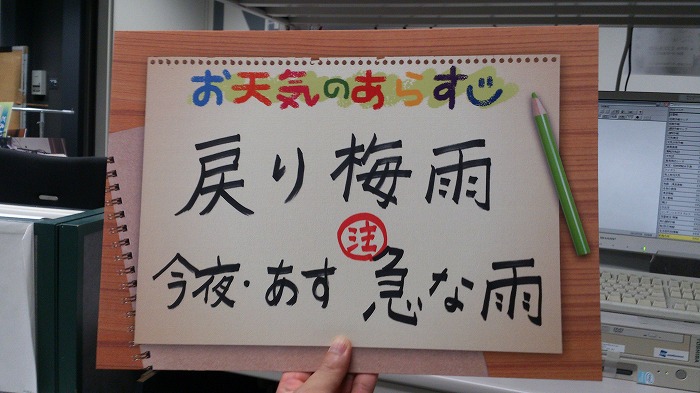 お天気のあらすじ
戻り梅雨
注
今夜・あす 急な雨